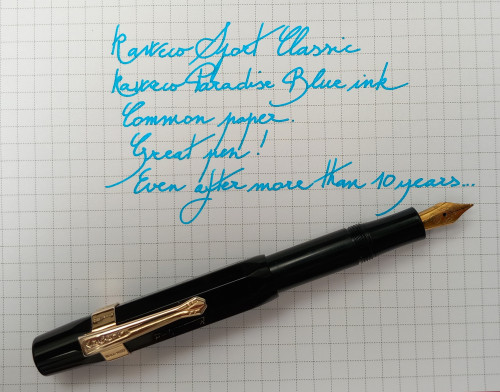 Kaweco Sport Classic
Kaweco Paradise Blue ink
Common paper.
Great pen!
Even after more than 10 years...